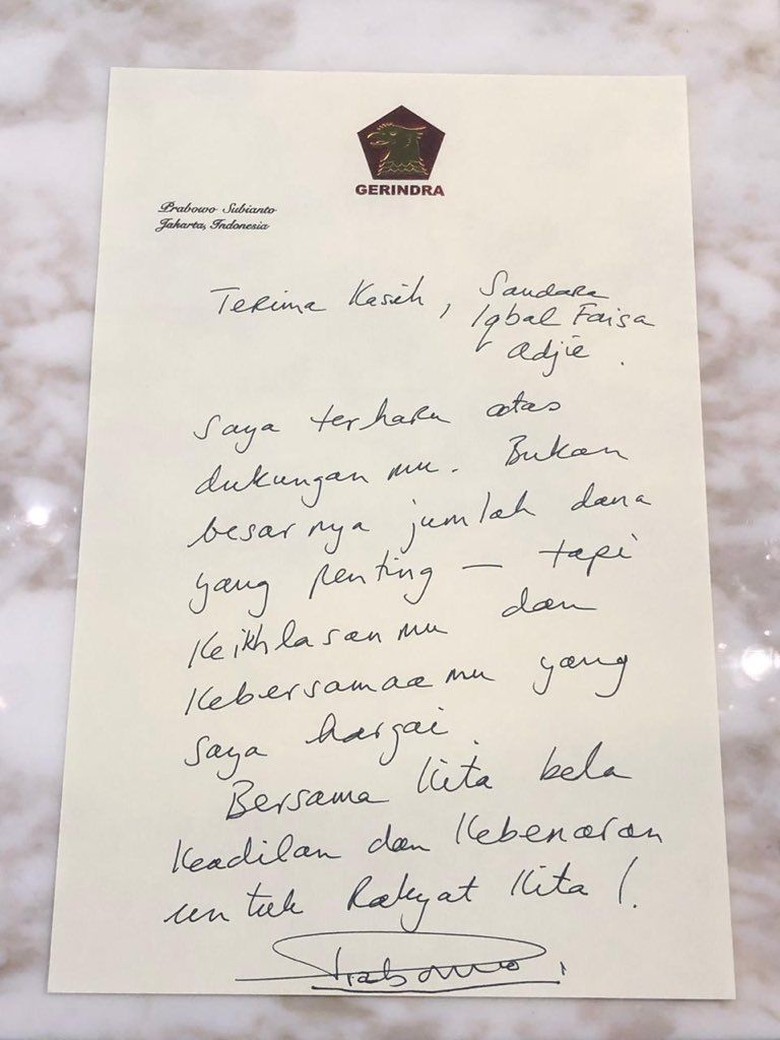 GERINDRA
Prabowo Subianto
Jakarta, Indonesia
Terima Kasih, Saudara
Iqbal Faisa
Adjie.
Saya terharu atas
dukungan mu. Bukan
besar nya jumlah dana
yang penting — tapi
Keikhlasan mu dan
Kebersamaa mu yang
saya hargai.
Bersama Kita bela
Keadilan dan Kebenaran
untuk Rakyat Kita !.
Prabowo